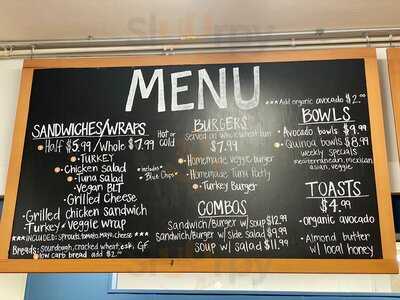 MENU
***Add organic avocado $2.00
SANDWICHES/WRAPS
Hot or cold
Half $5.99/Whole $7.99
• TURKEY
• Chicken salad
• Tuna Salad
• Vegan BLT
• Grilled Cheese
• Grilled chicken sandwich
• Turkey • Veggie wrap
*includes*
*Blue Chips*
***INCLUDED: Sprouts, tomato, mayo, cheese***
Breads: sourdough, cracked wheat, GF
low carb bread add $2.00
BURGERS
Served on whole wheat bun
$7.99
• Homemade veggie burger
• Homemade Tuna Patty
• Turkey Burger
COMBOS
Sandwich/Burger w/soup $12.99
Sandwich/Burger w/side salad $9.99
soup w/ salad $11.99
BOWLS
• Avocado bowls $9.99
• Quinoa bowls $8.99
weekly specials
mediterranean, mexican
asian, veggie
TOASTS
$4.99
• organic avocado
• Almond butter
w/ local honey